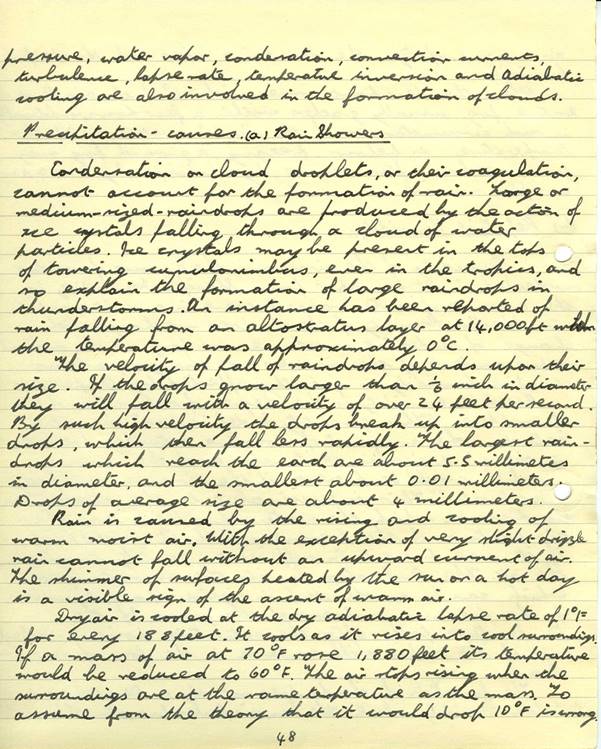 pressure, water vapor, condensation, convection currents,
turbulence, lapse rate, temperature inversion and Adiabatic
cooling are also involved in the formation of clouds.
Precipitation - causes. (a) Rain Showers
Condensation on cloud droplets, or their coagulation,
cannot account for the formation of rain. Large or
medium-sized-raindrops are produced by the action of
ice crystals falling through a cloud of water
particles. Ice crystals may be present in the tops
of towering cumulonimbus, even in the tropics, and
so explain the formation of large raindrops in
thunderstorms. An instance has been reported of
rain falling from an altostratus layer at 14,000ft when
the temperature was approximately 0°C.
The velocity of fall of raindrops depends upon their
size. If the drops grow larger than inch in diameter
they will fall with a velocity of over 24 feet per second.
By such high velocity the drops break up into smaller
drops, which then fall less rapidly. The largest rain-
drops which reach the earth are about 5.5 millimetres
in diameter, and the smallest about 0.01 millimeters.
Drops of average size are about 4 millimeters.
Rain is caused by the rising and cooling of
warm moist air. With the exception of very slight drizzle
rain cannot fall without an upward current of air.
The shimmer of surfaces heated by the sun on a hot day
is a visible sign of the ascent of warm air.
Dry air is cooled at the dry adiabatic lapse rate of 1°F
for every 188 feet. It cools as it rises into cool surroundings.
If a mass of air at 70°F rose 1,880 feet its temperature
would be reduced to 60°F. The air stops rising when the
surroundings are at the same temperature as the mass. To
assume from the theory that it would drop 10°F is wrong.
48